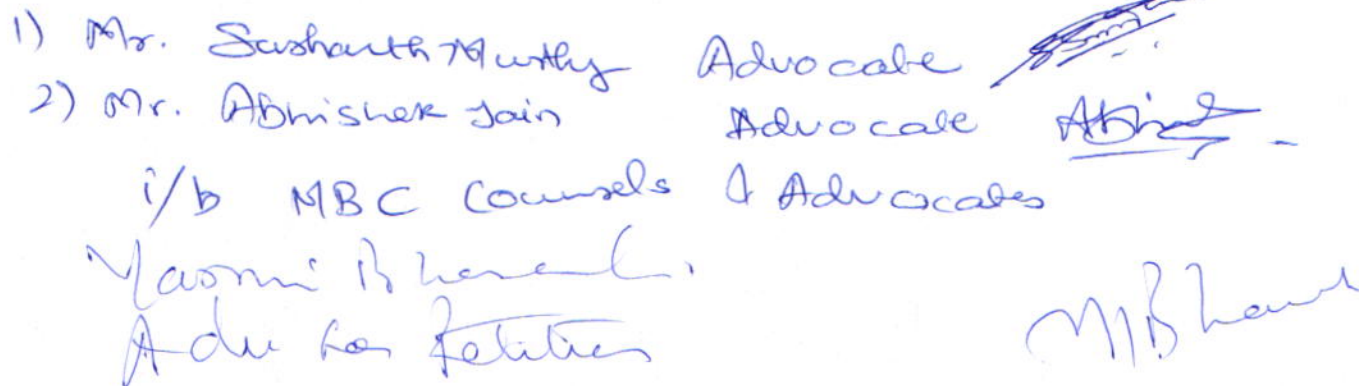 1) Mr. Sushanth Murthy Advocate
2) Mr. Abhishek Jain Advocate
i/b MBC Counsels & Advocates
Yasmin
Adv for Petitioner